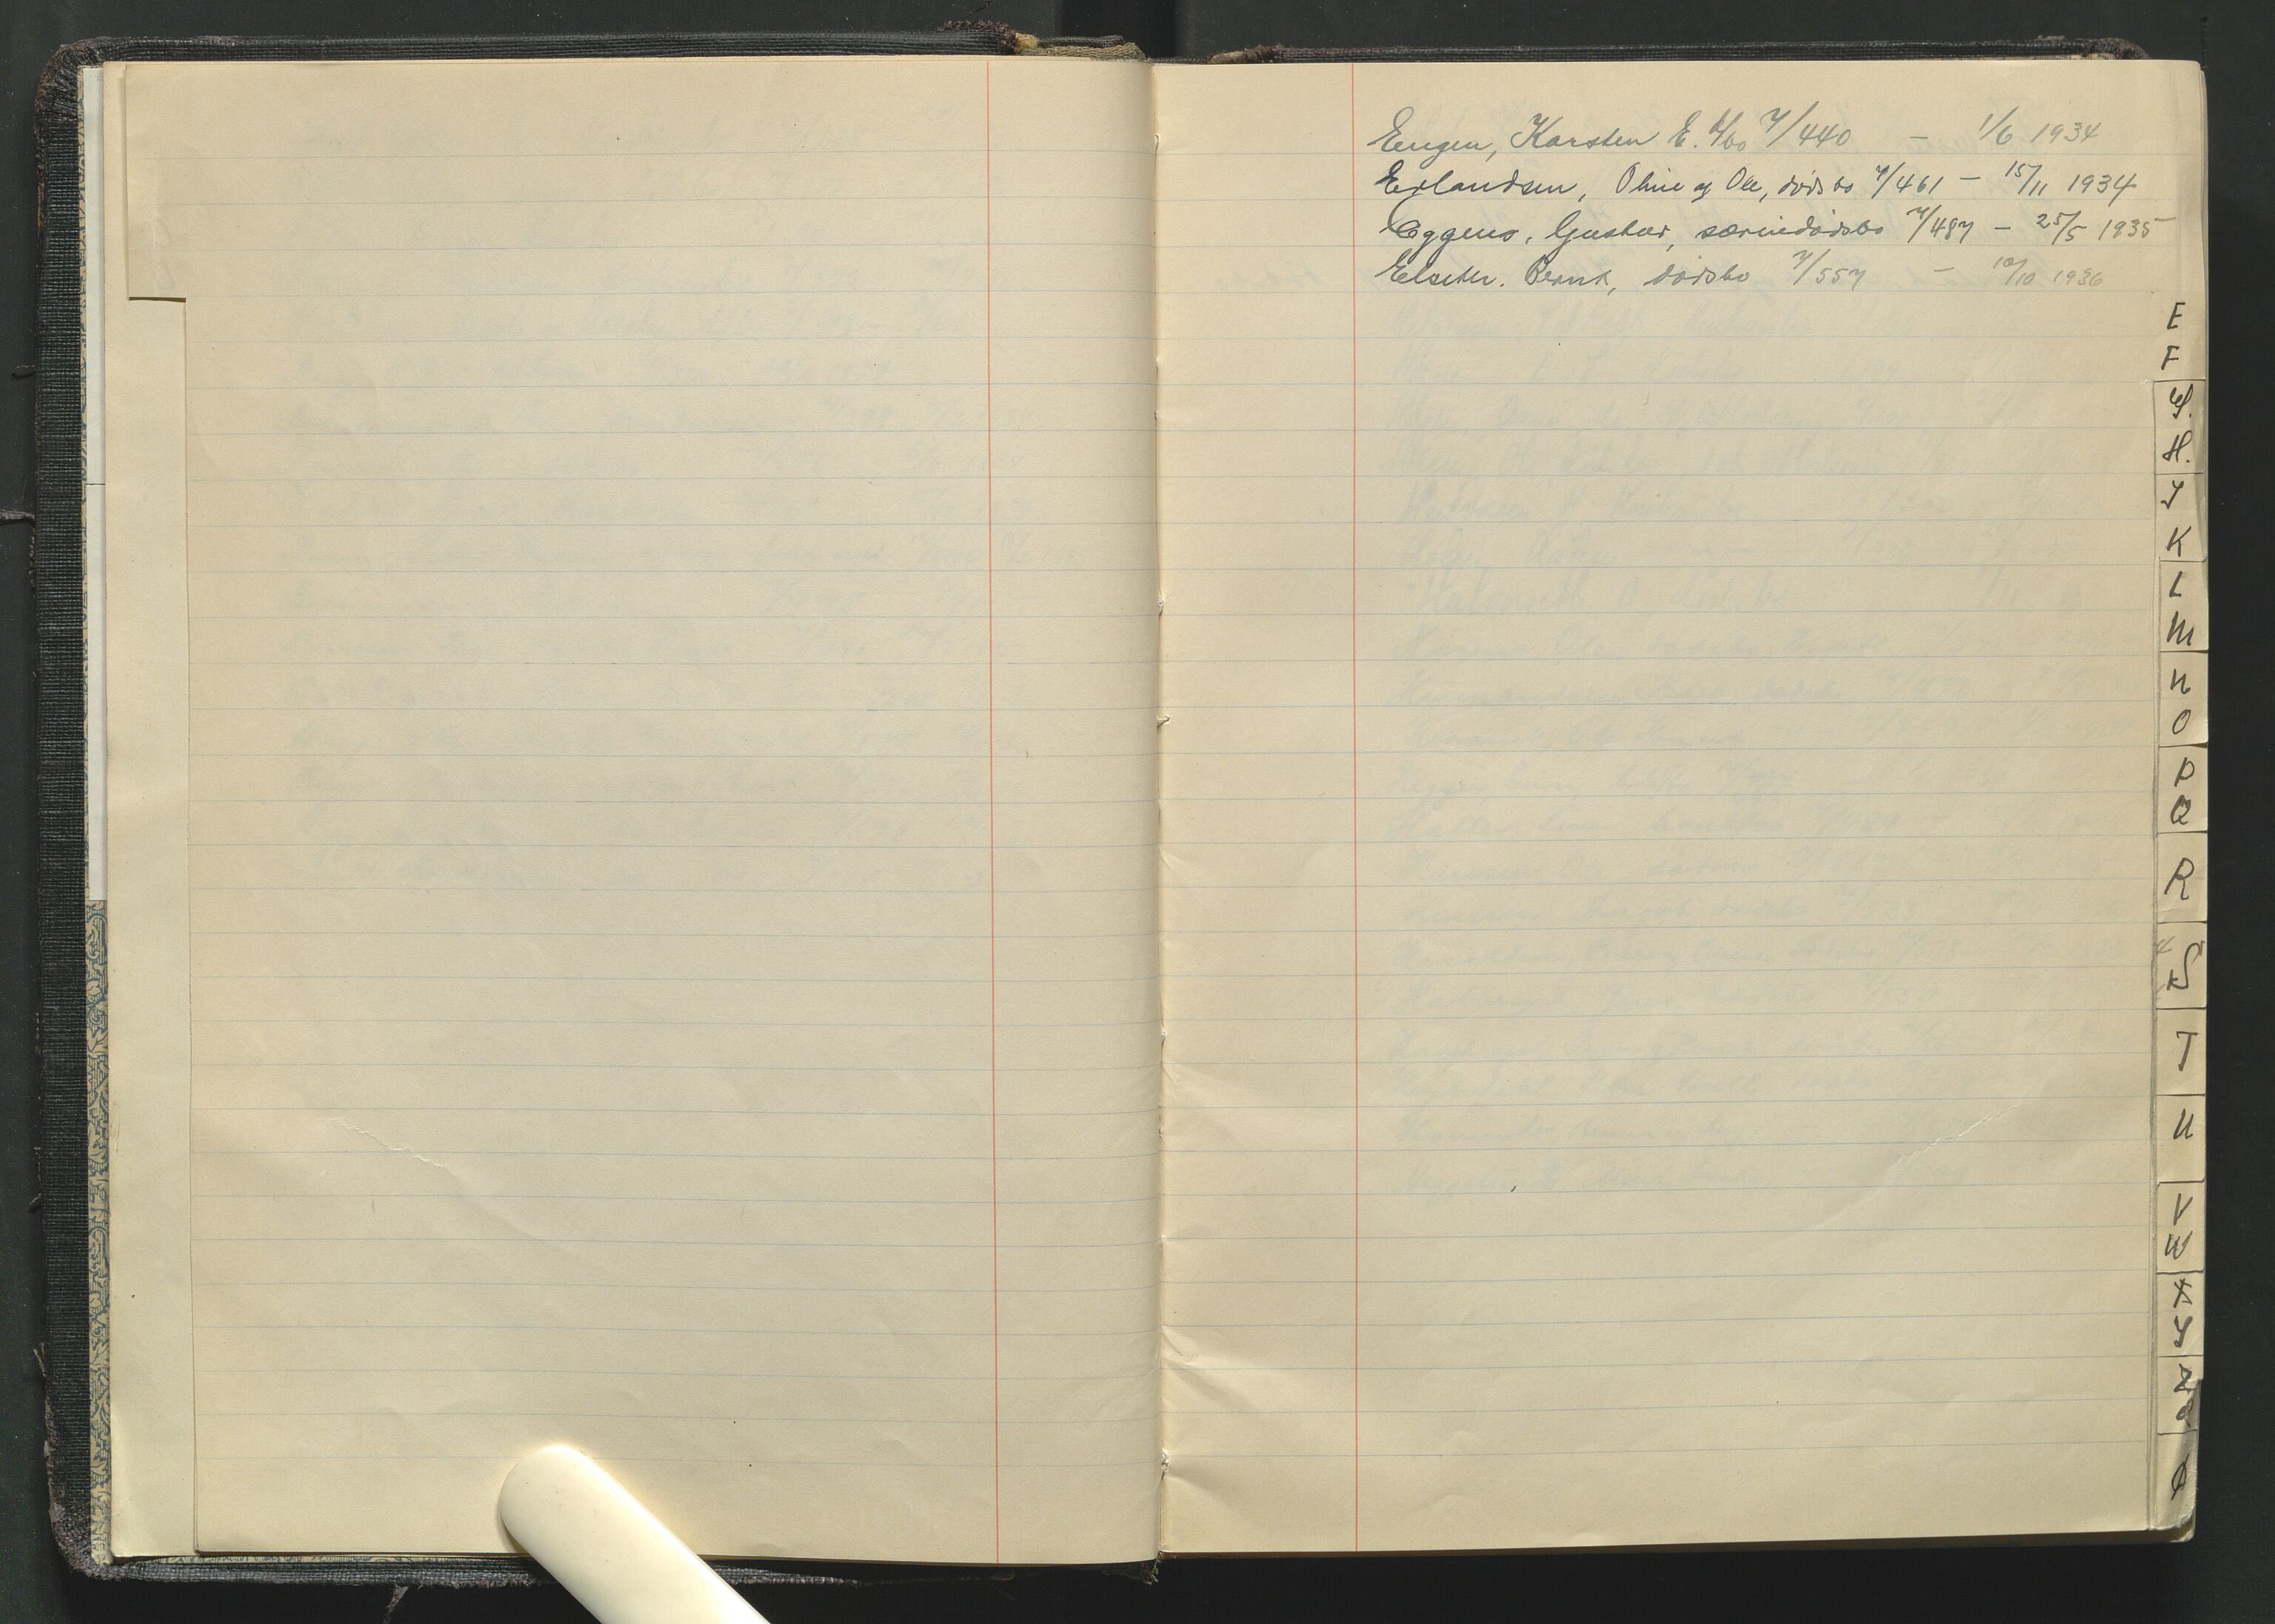 Engen, Karsten E. k/bo 7/440 - 1/6 1934
Erlandsen, Oline og Ole, dødsbo 7/461 - 15/11 1934
Eggens, Gustav, særiedødsbo 7/487 - 25/5 1935
Elseth, Bernt, dødsbo 7/557 - 10/10 1936
E
F
G.
H.
J
K
L
M
N
O
P
Q
R
S
T
U
V
W
X
Y
Z
Ø